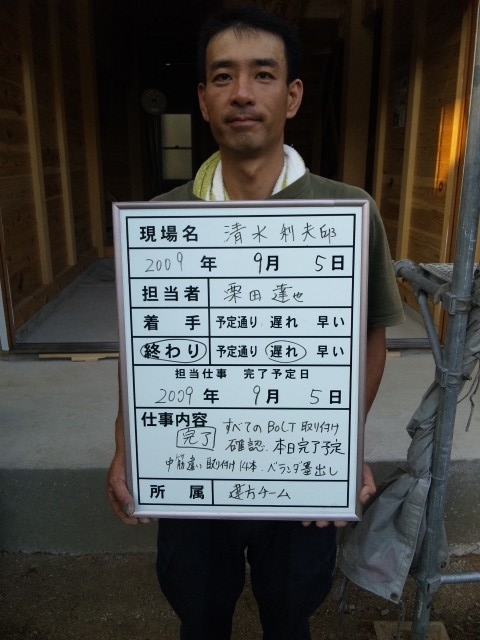 現場名 清水利夫邸
2009年 9月 5日
担当者 栗田達也
着手 予定通り 遅れ 早い
終わり 予定通り 遅れ 早い
担当仕事 完了予定日
2009年 9月 5日
仕事内容 すべてのBOLT取り付け
完了 確認、本日完了予定
中筋違い取り付け 14本、ベランダ墨出し
所属 建方チーム